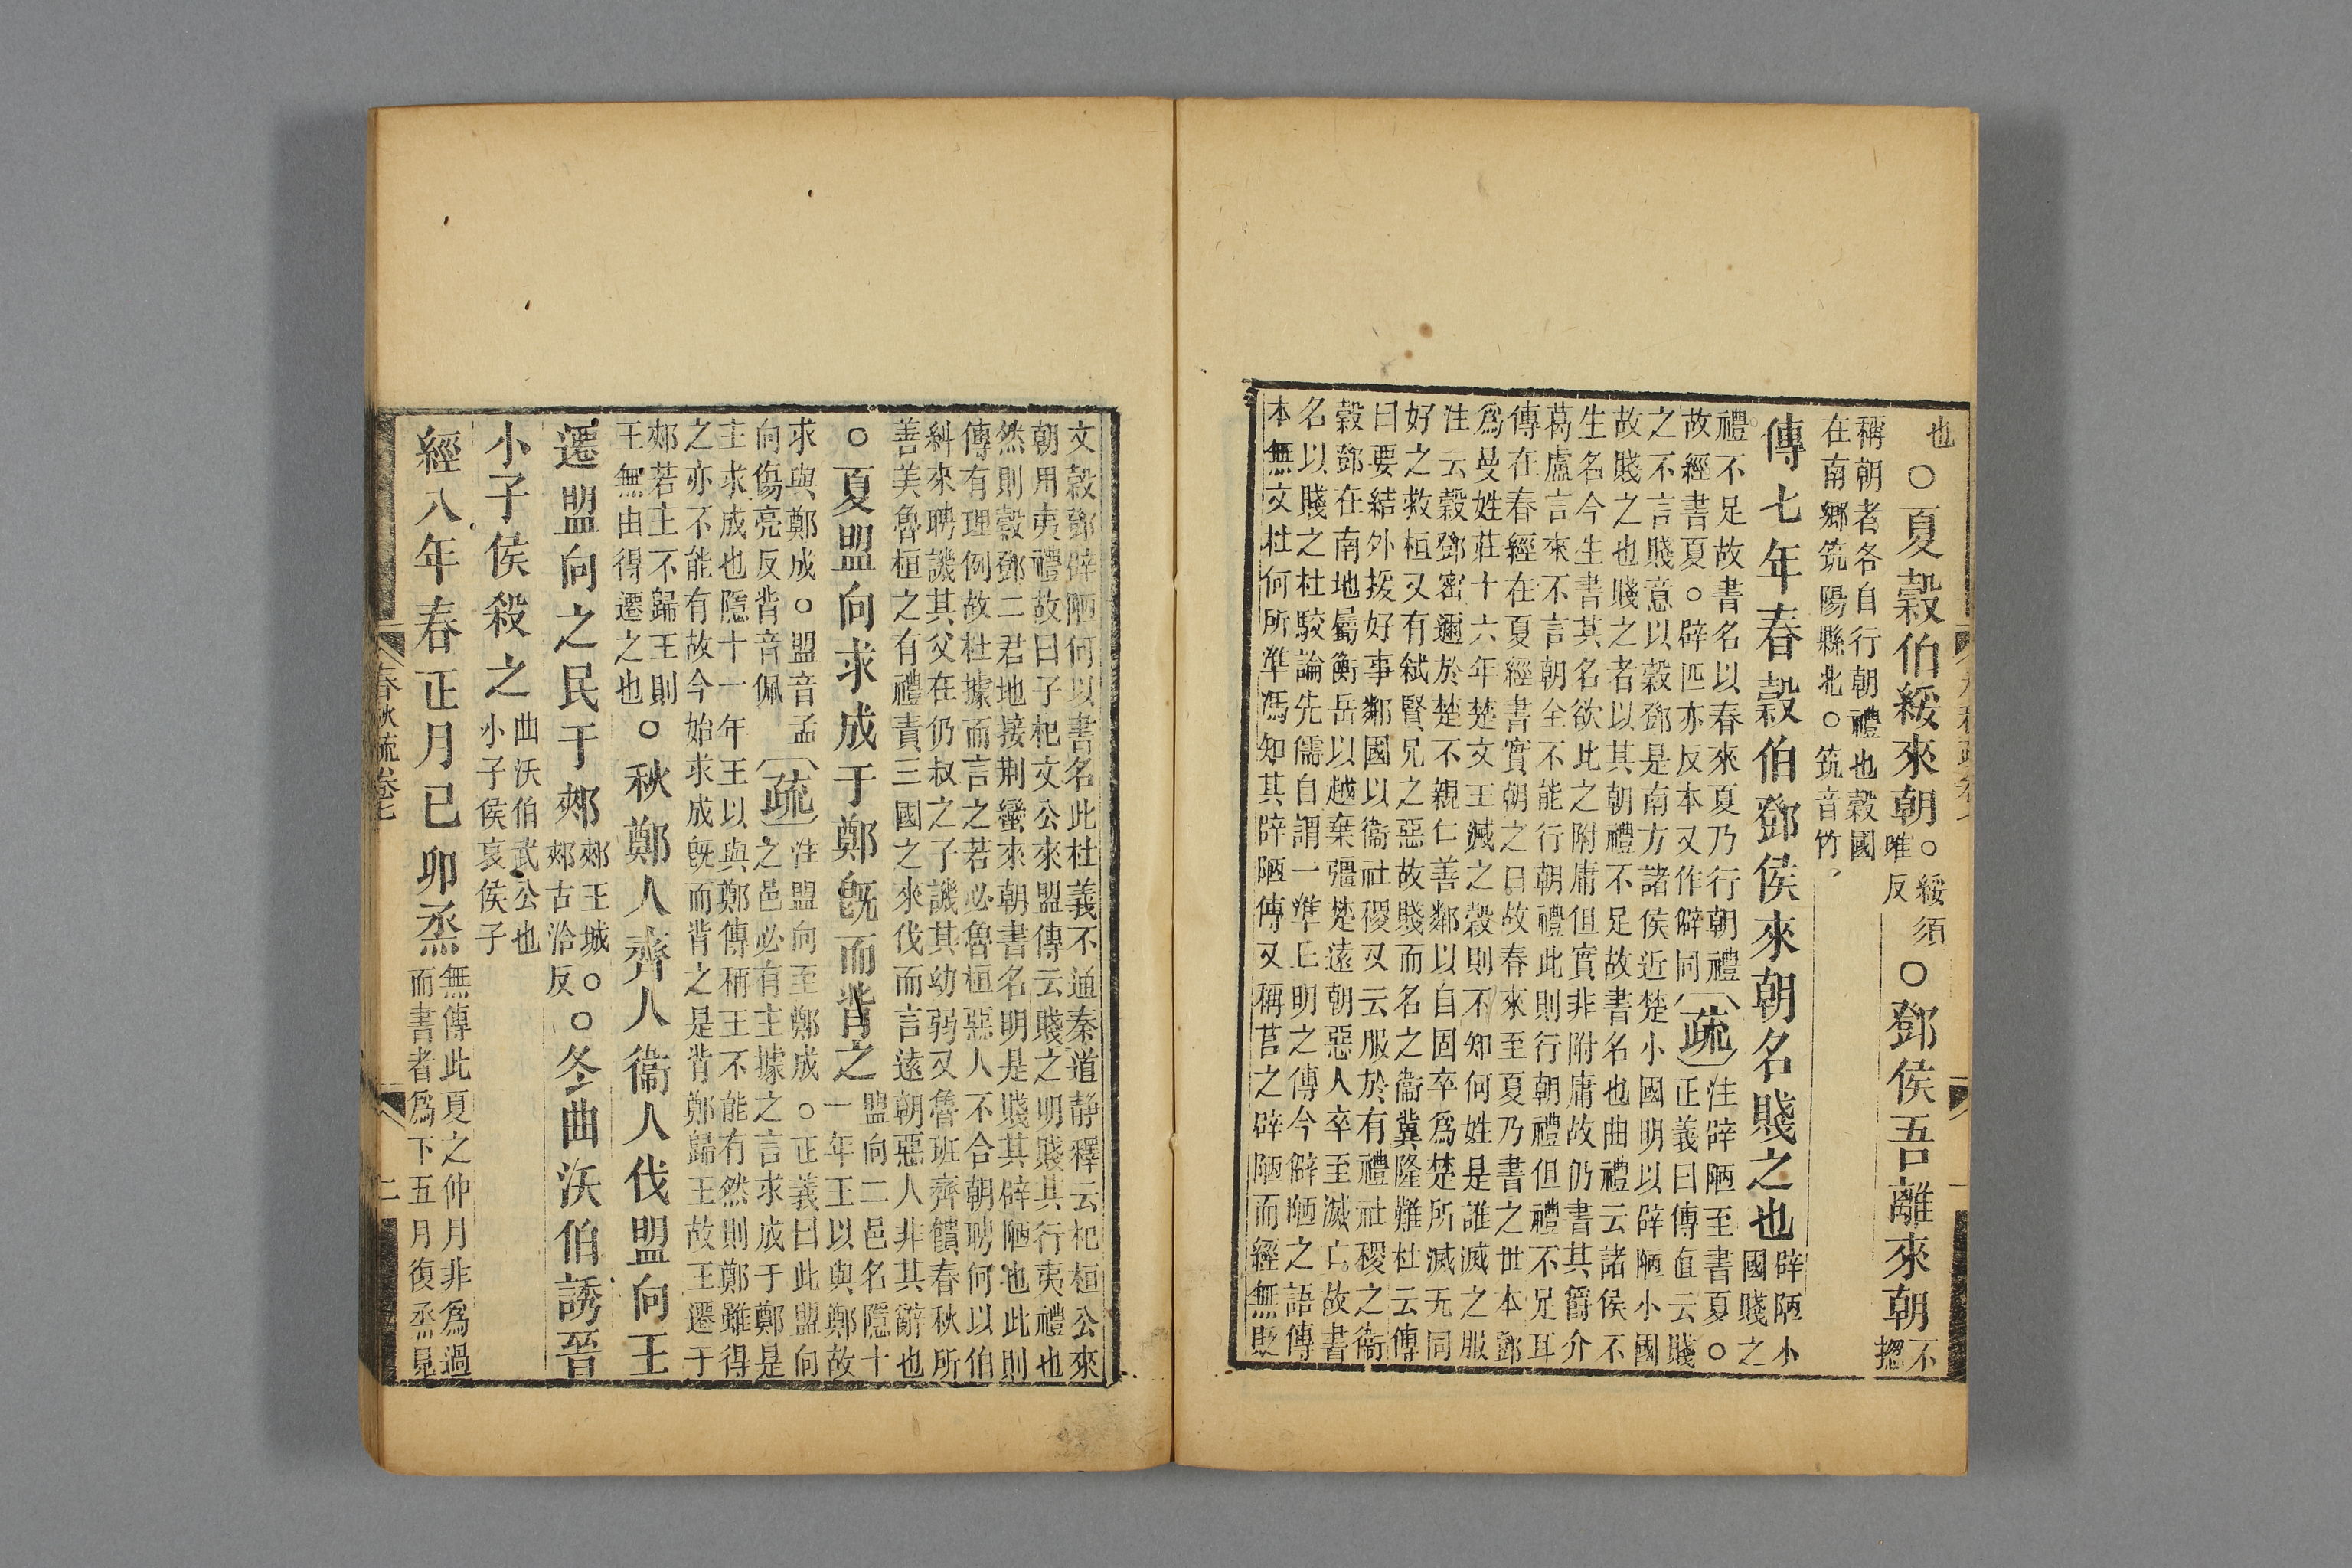 也○夏穀伯綏來朝○綏須唯反○鄧侯吾離來朝不摠
稱朝者各自行朝禮也穀國
在南鄉筑陽縣北○筑音竹
傳七年春穀伯鄧侯來朝名賤之也辟陋小國賤之
禮不足故書名以春來夏乃行朝禮
故經書夏○辟匹亦反本又作僻同
疏
注辟陋至書夏○
正義曰傳直云賤
之不言賤意以穀鄧是南方諸侯近楚小國明以辟陋小國
故賤之也賤之者以其朝禮不足故書名也曲禮云諸侯不
生名今生書其名欲比之附庸但實非附庸故仍書其爵介
葛盧言來不言朝全不能行朝禮此則行朝禮但禮不足耳
傳在春經在夏經書實朝之日故春來至夏乃書之世本鄧
爲曼姓莊十六年楚文王滅之穀則不知何姓是誰滅之服
注云穀鄧密邇於楚不親仁善鄰以自固卒爲楚所滅无同
好之救桓又有弒賢兄之惡故賤而名之衞冀隆難杜云傳
曰要結外援好事鄰國以衞社稷又云服於有禮社稷之衞
穀鄧在南地屬衡岳以越棄彊楚遠朝惡人卒至滅亡故書
名以賤之杜駮論先儒自謂一準丘明之傳今僻陋之語傳
本無文杜何所準馮知其辟陋傳又稱莒之辟陋而經無貶
文穀鄧辟陋何以書名此杜義不通秦道静釋云杞桓公來
朝用夷禮故曰子杞文公來盟傳云賤之明賤其行夷禮也
然則穀鄧二君地接荆蠻來朝書名明是賤其辟陋也此則
傳有理例故杜據而言之若必魯桓惡人不合朝聘何以伯
糾來聘譏其父在仍叔之子譏其幼弱又魯班齊饋春秋所
善美魯桓之有禮責三國之來伐而言遠朝惡人非其辭也
○夏盟向求成于鄭旣而背之盟向二邑名隱十一年王以與鄭故
求與鄭成○盟音孟
向傷亮反背音佩
疏
注盟向至鄭成○正義曰此盟向
之邑必有主據之言求成于鄭是
主求成也隱十一年王以與鄭傳稱王不能有然則鄭雖得
之亦不能有故今始求成旣而背之是背鄭歸王故王遷于
郟若主不歸王則
王無由得遷之也
○秋鄭人齊人衞人伐盟向王
遷盟向之民于郟郟王城○郟古洽反○冬曲沃伯誘晉
小子侯殺之曲沃伯武公也小子侯哀侯子
經八年春正月已卯烝無傳此夏之仲月非爲過而書者爲下五月復烝見
春秋疏卷七
二